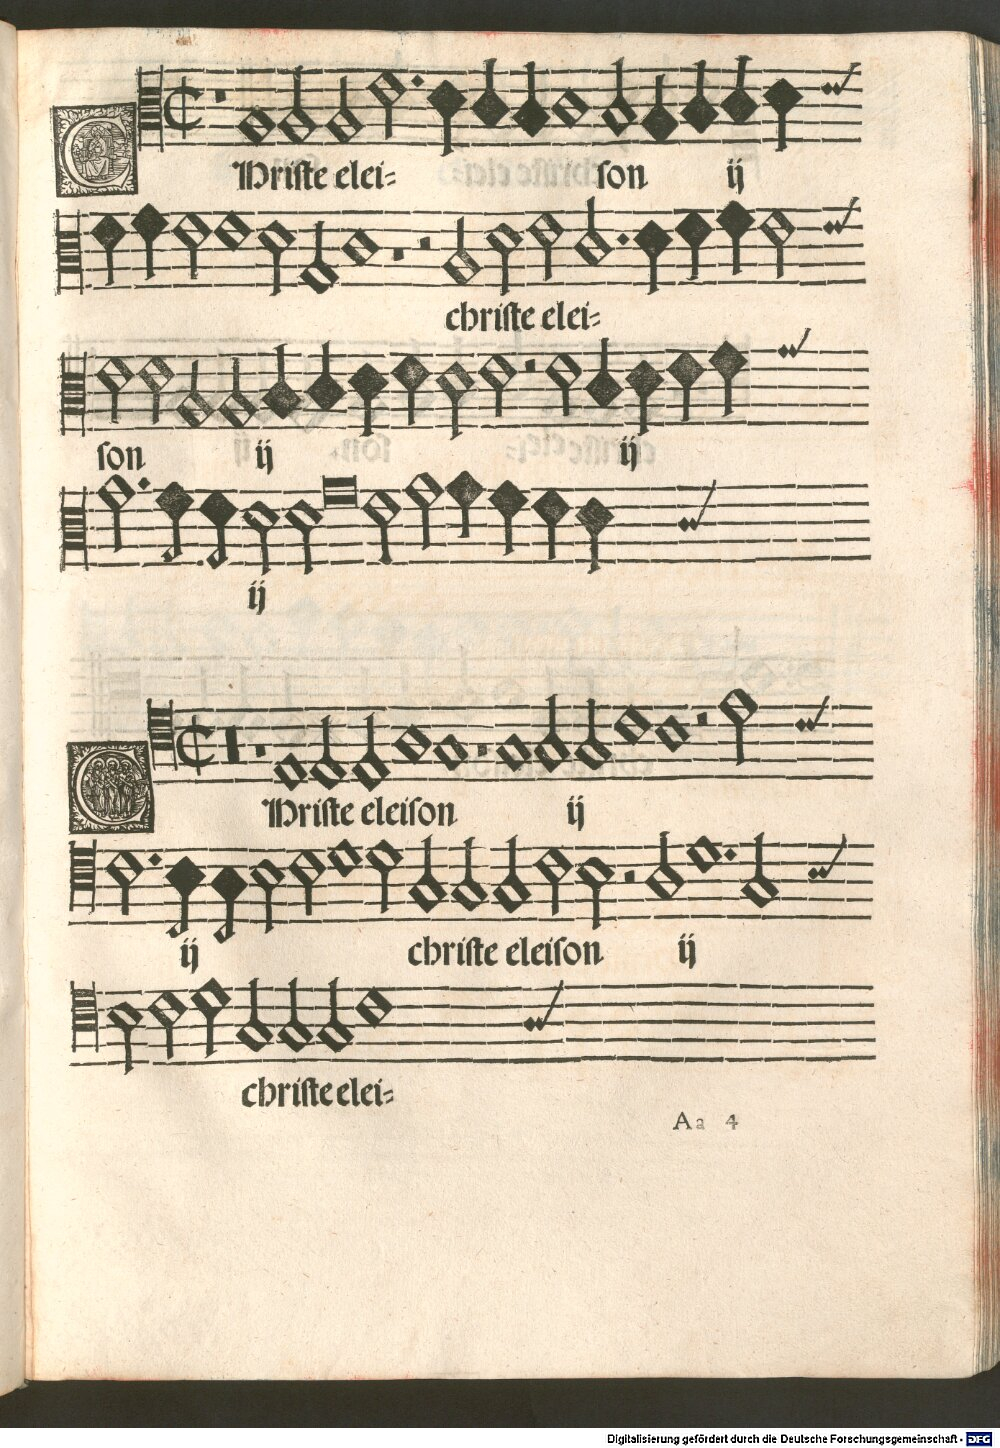 CHriſte elei⸗ ſon ij
chriſte elei⸗
ſon ij ij
ij
CHriſte eleiſon ij
ij chriſte eleiſon ij
chriſte elei⸗
Aa 4
Digitalisierung gefördert durch die Deutsche Forschungsgemeinschaft - DFG